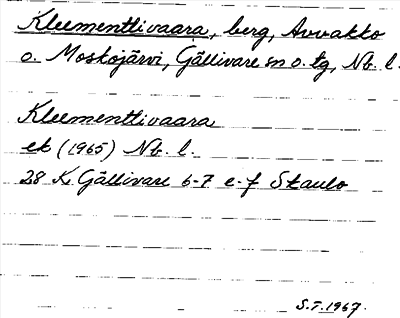 Kleementtivaara, berg, Avvakko
o. Moskojärvi, Gällivare sn o. tg, Nb. l.
Kleementtivaara
ek (1965) Nb. l.
28 K Gällivare 6-7 e-f Skaulo
S.T. 1967.